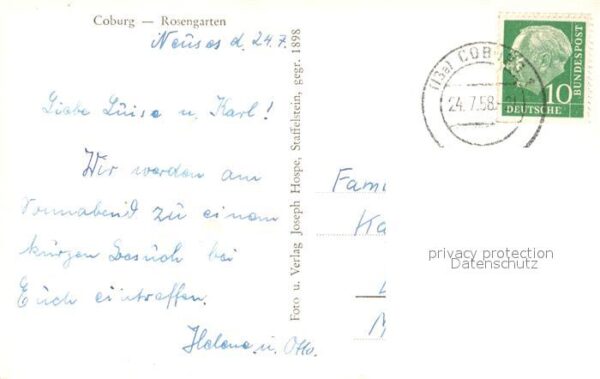 Coburg — Rosengarten
Neuses d. 24.7.
Liebe Luise u. Karl!
Wir werden am
Sonnabend zu einem
kurzen Besuch bei
Euch eintreffen.
Helene u. Otto.
Foto u. Verlag Joseph Hospe, Staffelstein, gegr. 1898
(13a) COBURG
24.7.58.
10
DEUTSCHE
BUNDESPOST
Fami
Ka
privacy protection
Datenschutz